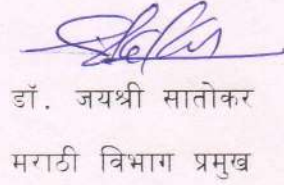 डॉ. जयश्री सातोकर
मराठी विभाग प्रमुख